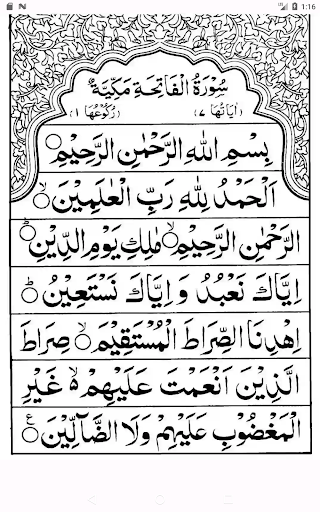 1:16
سُوْرَةُ الْفَاتِحَةِ مَكِّيَّةٌ
(اٰیَاتُهَا ۷) (رُكُوْعُهَا ۱)
بِسْمِ اللهِ الرَّحْمٰنِ الرَّحِیْمِ
اَلْحَمْدُ لِلّٰهِ رَبِّ الْعٰلَمِیْنَۙ
الرَّحْمٰنِ الرَّحِیْمِۙ مٰلِكِ یَوْمِ الدِّیْنِؕ
اِیَّاكَ نَعْبُدُ وَ اِیَّاكَ نَسْتَعِیْنُؕ
اِهْدِنَا الصِّرَاطَ الْمُسْتَقِیْمَۙ صِرَاطَ
الَّذِیْنَ اَنْعَمْتَ عَلَیْهِمْ ۙ۬ غَیْرِ
الْمَغْضُوْبِ عَلَیْهِمْ وَلَا الضَّآلِّیْنَ ع